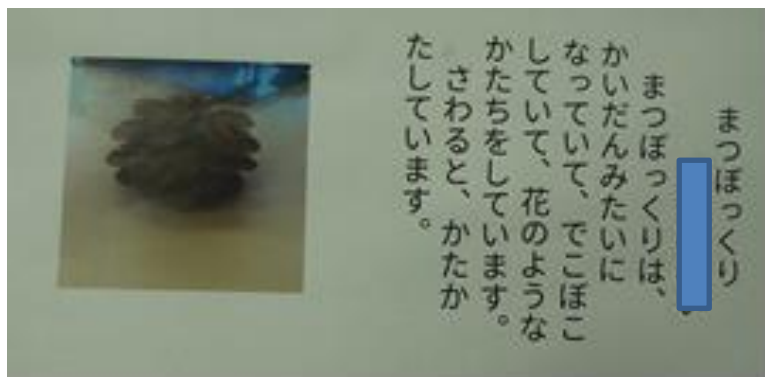 まつぼっくり
まつぼっくりは、
かいだんみたいに
なっていて、でこぼこ
していて、花のような
かたちをしています。
さわると、かたか
たしています。